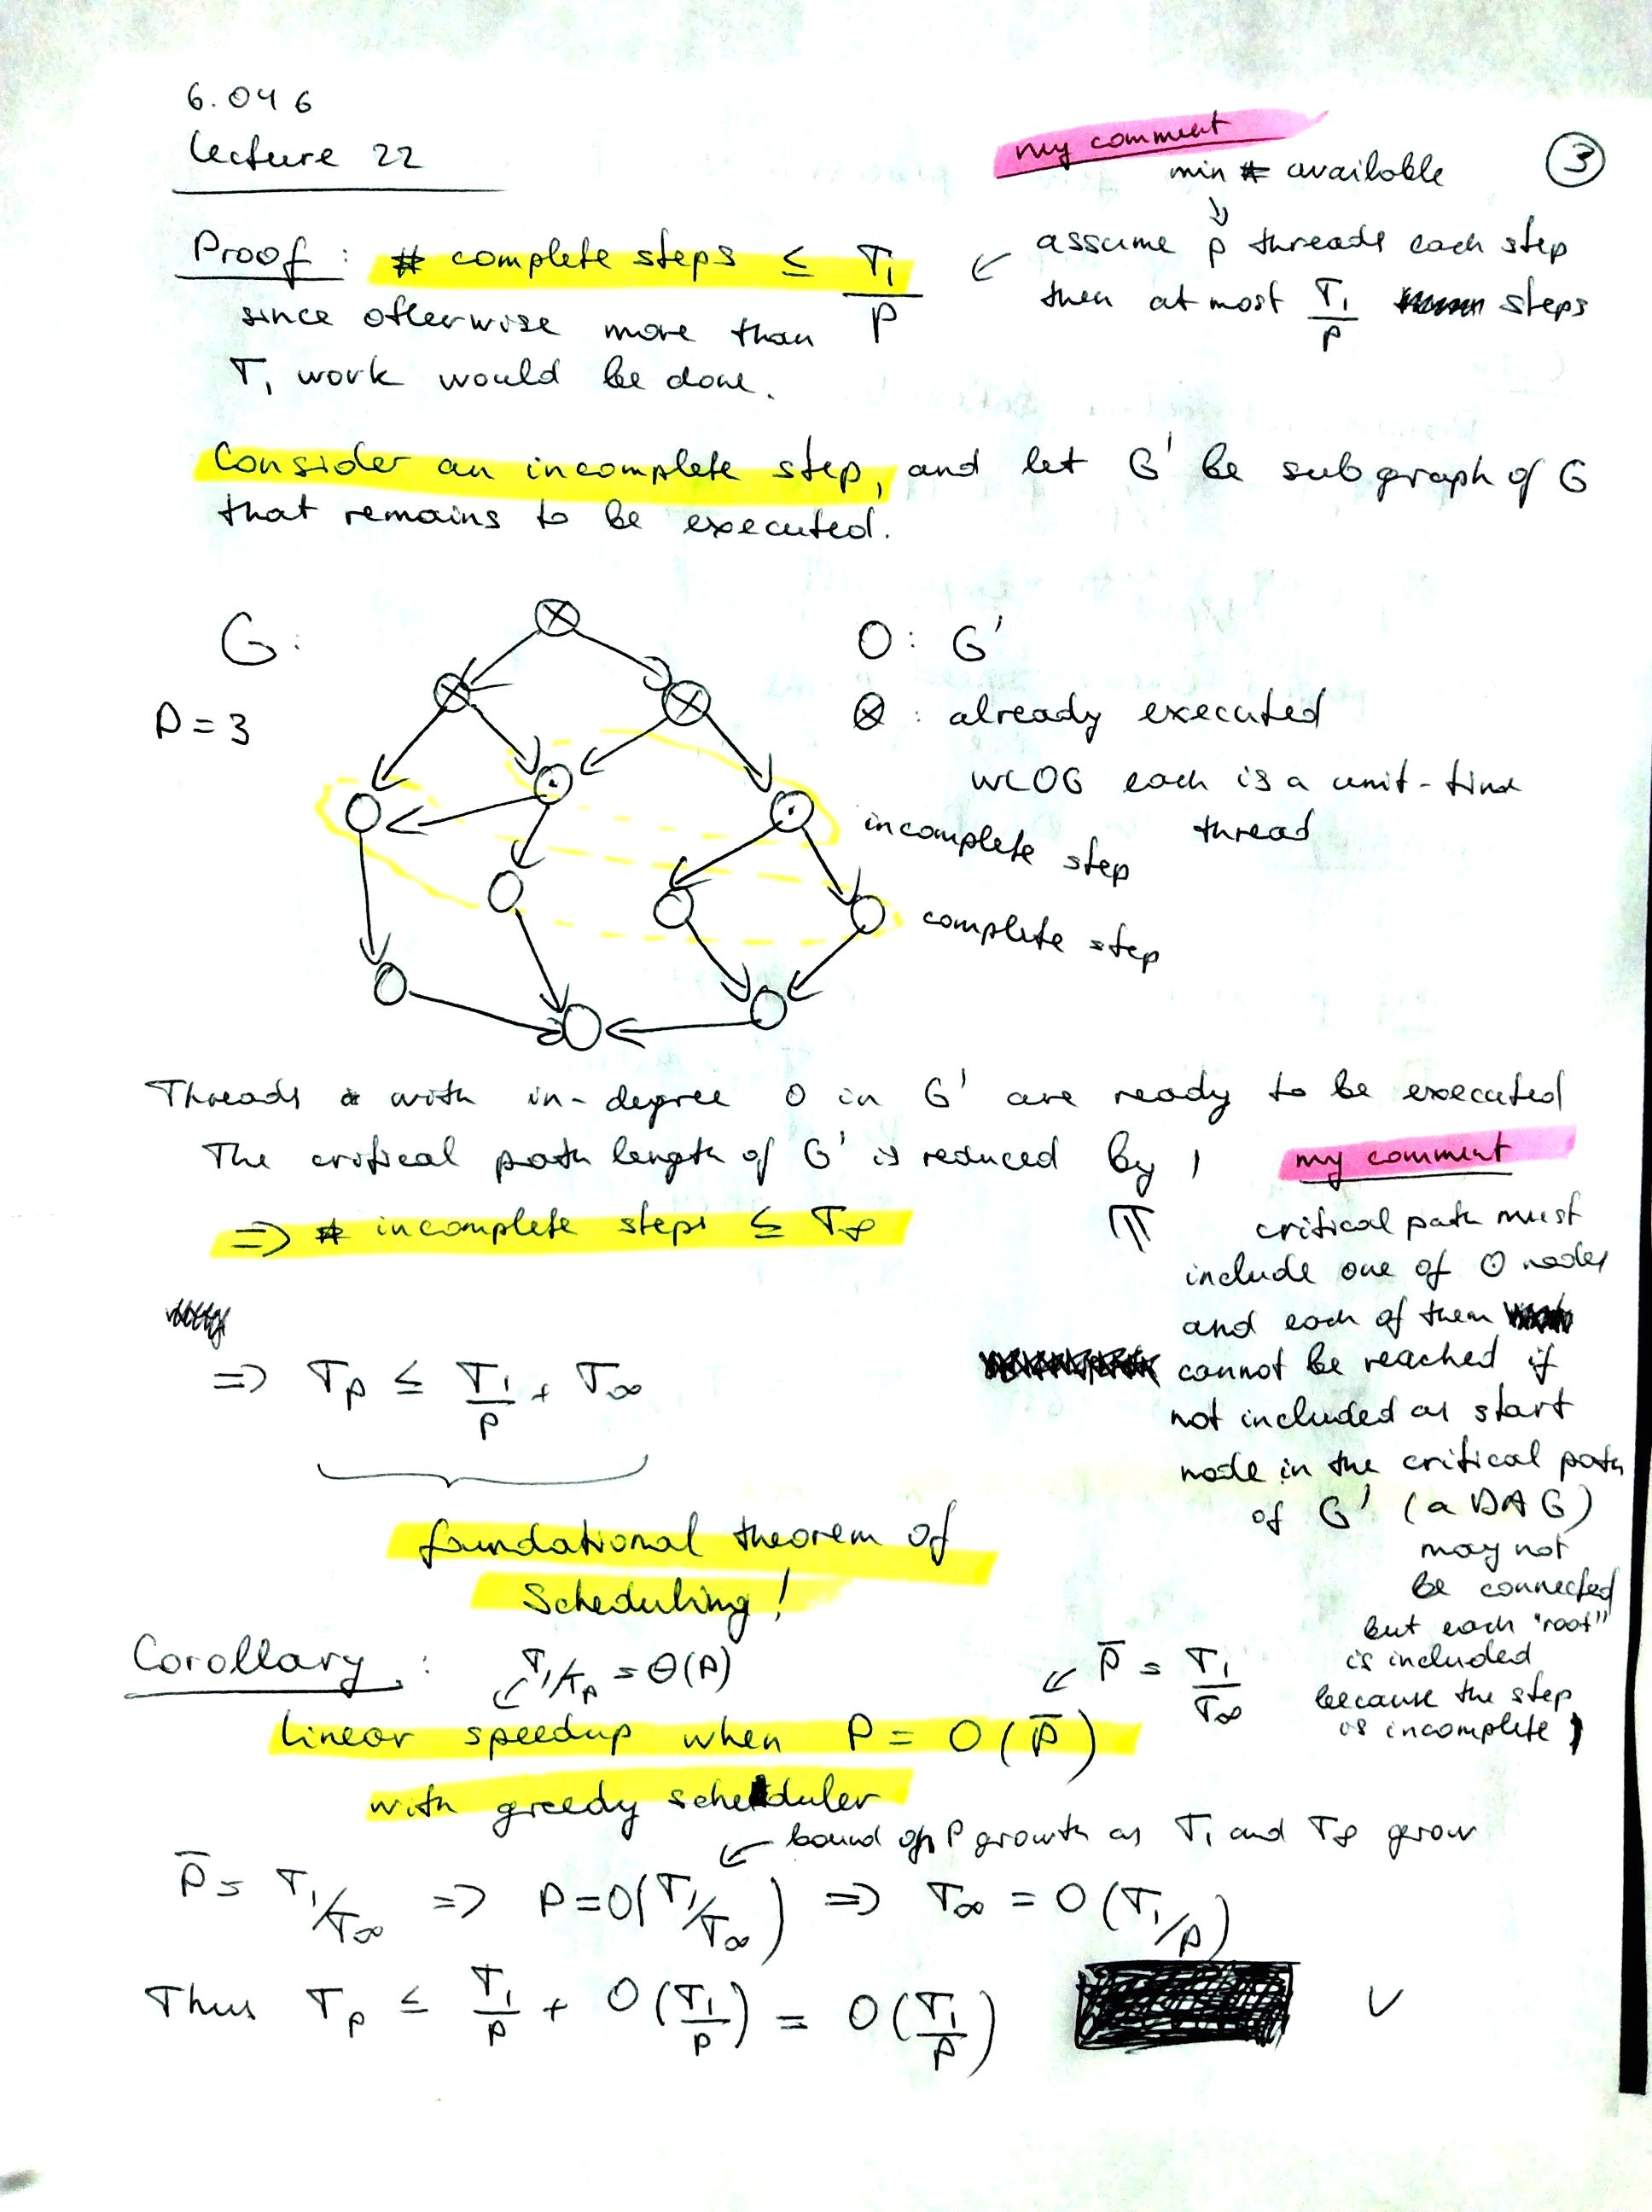 6.046
Lecture 22
my comment
3
min # available
Proof : # complete steps ≤ T₁/P
← assume p threads each step
then at most T₁/P steps
since otherwise more than
T₁ work would be done.
Consider an incomplete step, and let G' be subgraph of G
that remains to be executed.
G:
P=3
O : G'
⊗ : already executed
WLOG each is a unit-time
thread
incomplete step
complete step
Threads with in-degree 0 in G' are ready to be executed
The critical path length of G' is reduced by 1
⇒ # incomplete steps ≤ T∞
my comment
⇑ critical path must
include one of ⊙ nodes
and each of them
cannot be reached if
not included as start
node in the critical path
of G' (a DAG)
may not
be connected
but each "root"
is included
because the step
is incomplete)
⇒ Tp ≤ T₁/P + T∞
foundational theorem of
Scheduling!
Corollary : T₁/Tp = Θ(P)
P̄ = T₁/T∞
Linear speedup when P = O(P̄)
with greedy scheduler
← bound on P growth as T₁ and T∞ grow
P̄ = T₁/T∞ ⇒ P=O(T₁/T∞) ⇒ T∞ = O(T₁/P)
Thus Tp ≤ T₁/P + O(T₁/P) = O(T₁/P) ✓